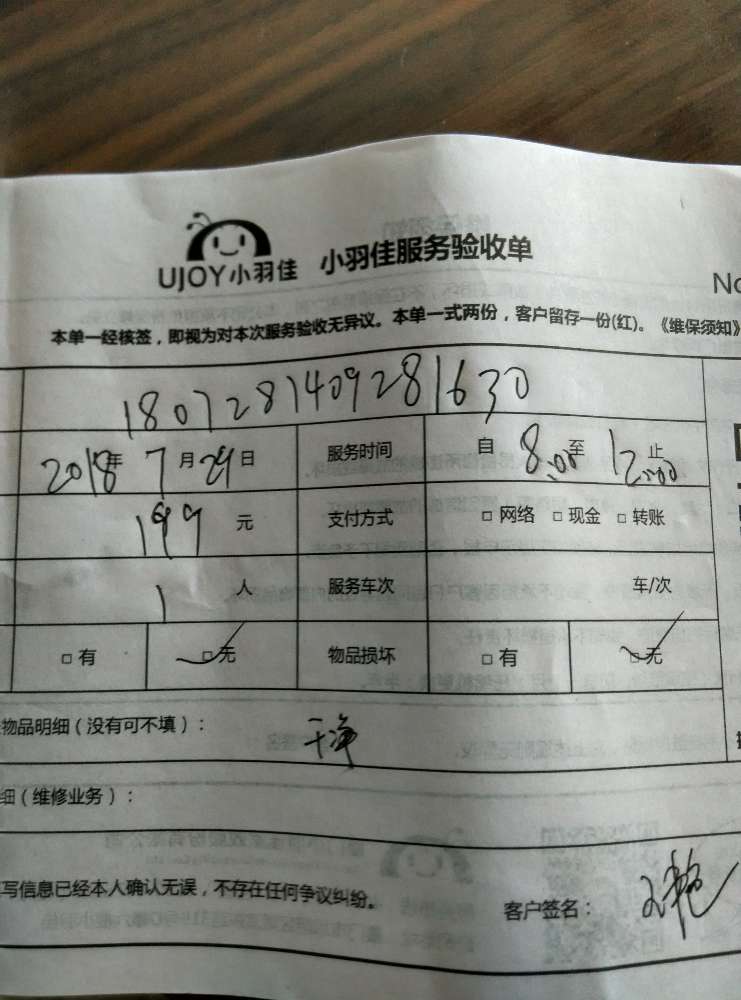 UJOY小羽佳 小羽佳服务验收单
No
本单一经核签，即视为对本次服务验收无异议。本单一式两份，客户留存一份(红)。《维保须知》
1807281409281630
2018年 7月29日 服务时间 自 8:00 至 12:00 止
199 元 支付方式 □ 网络 □ 现金 □ 转账
1 人 服务车次 车/次
□ 有 □ 无 物品损坏 □ 有 □ 无
物品明细（没有可不填）： 干净
细（维修业务）：
写信息已经本人确认无误，不存在任何争议纠纷。
客户签名：